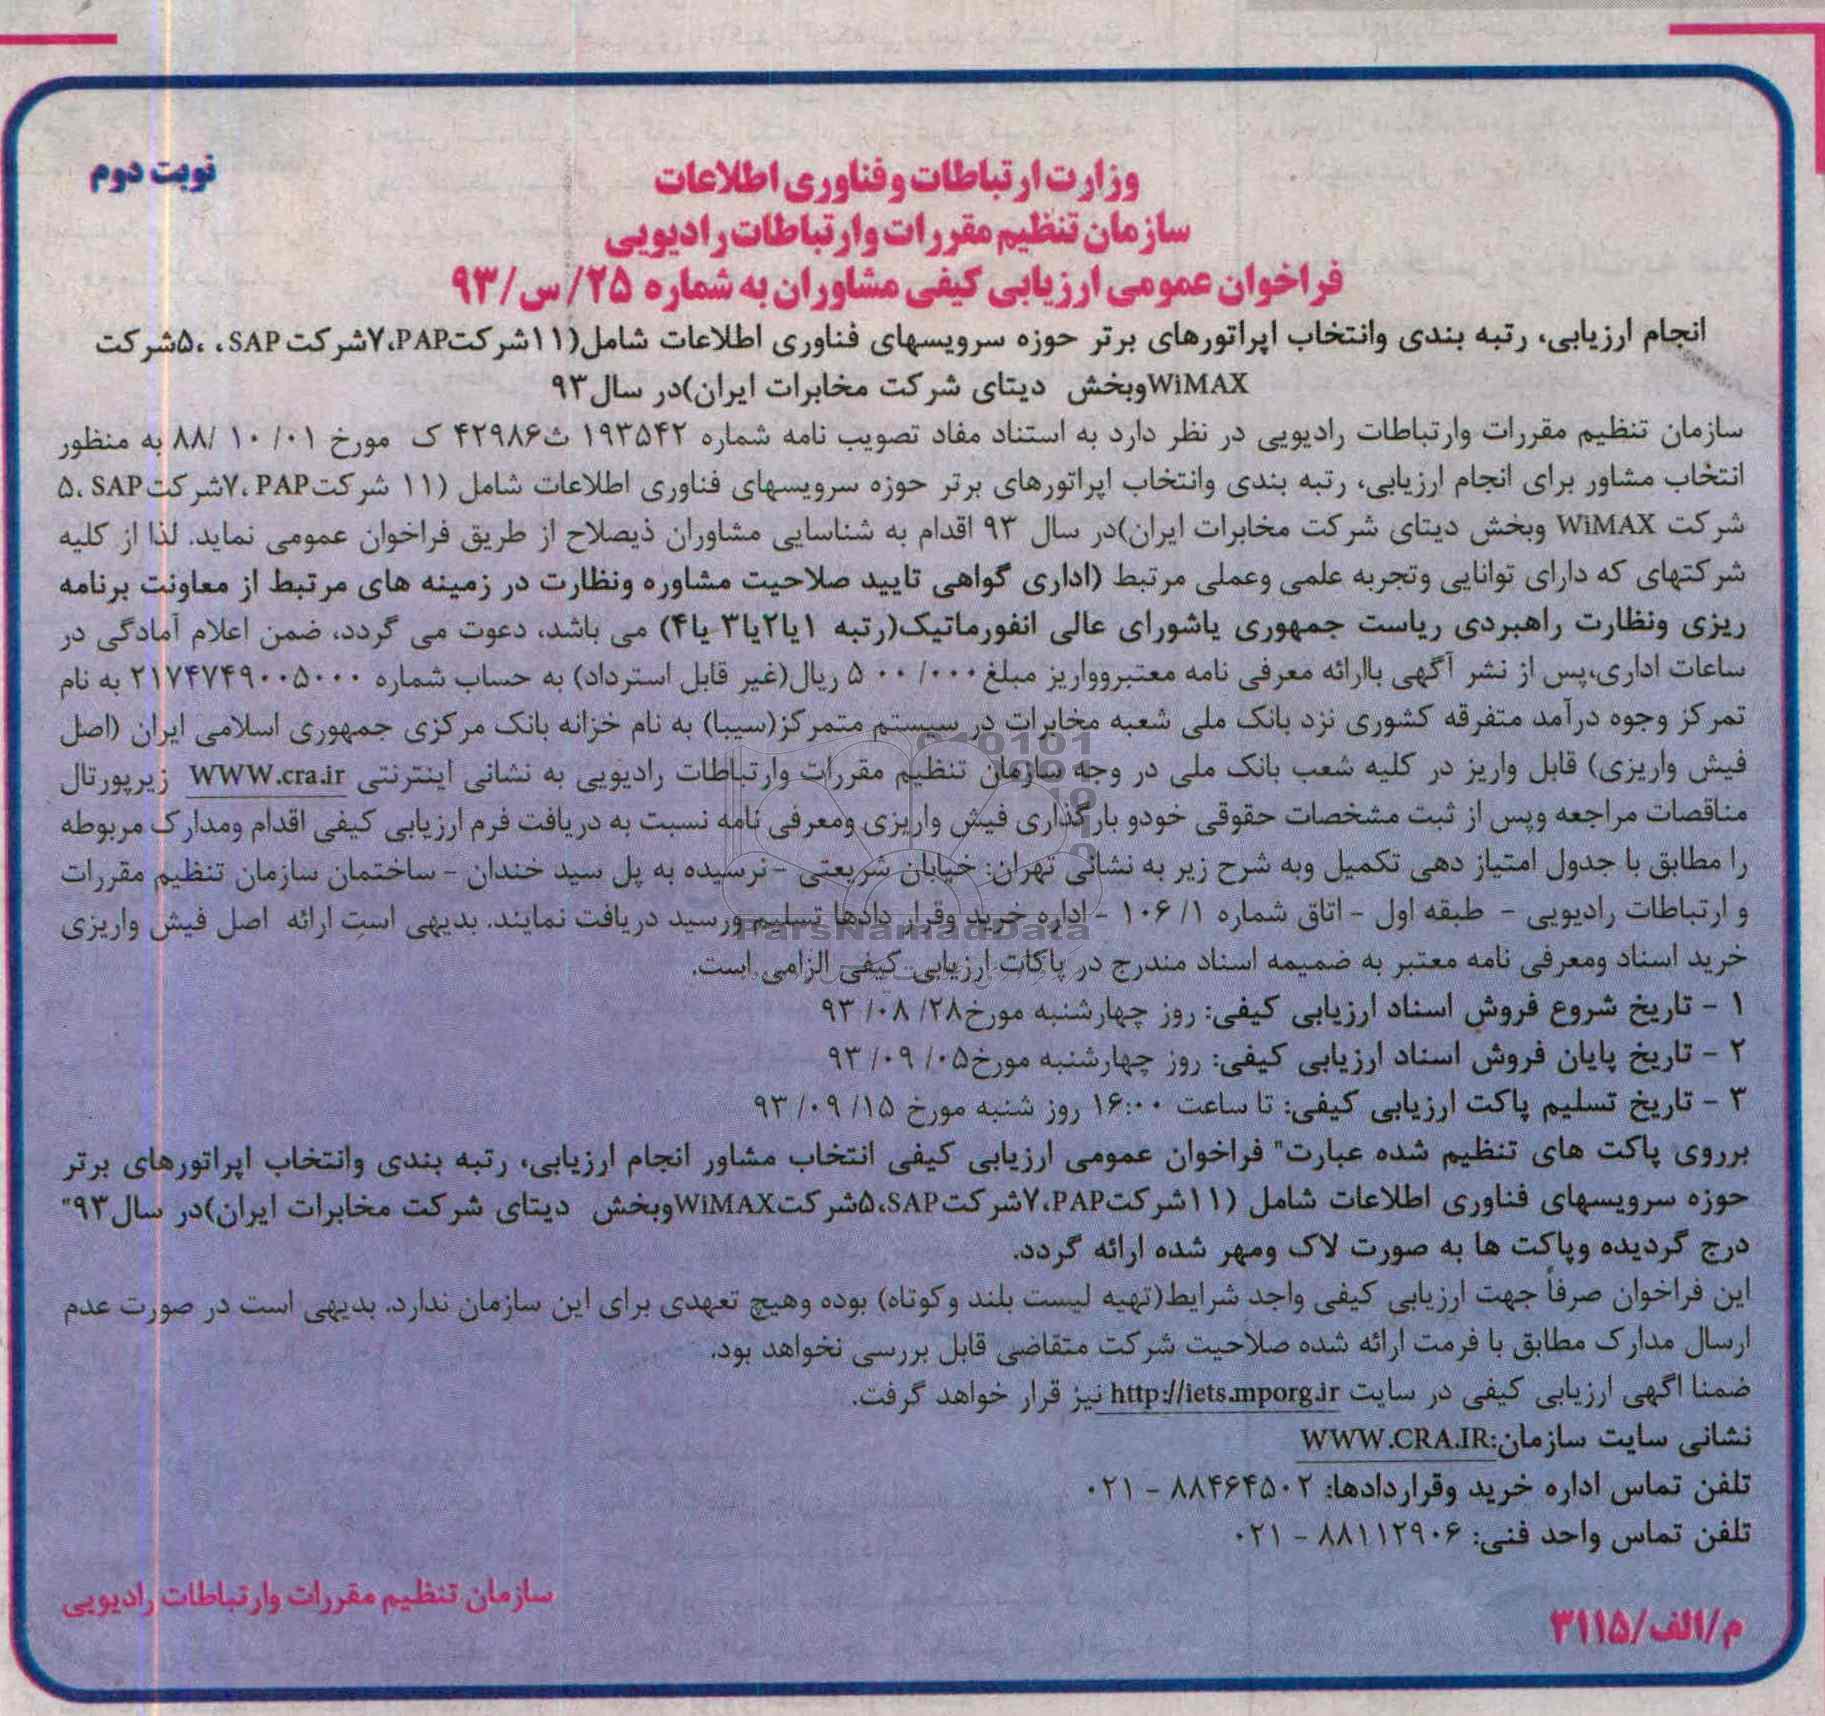 نوبت دوم
وزارت ارتباطات وفناوری اطلاعات
سازمان تنظیم مقررات وارتباطات رادیویی
فراخوان عمومی ارزیابی کیفی مشاوران به شماره ۲۵/س/۹۳
انجام ارزیابی، رتبه بندی وانتخاب اپراتورهای برتر حوزه سرویسهای فناوری اطلاعات شامل(۱۱شرکتPAP،۷شرکت SAP، ،۵شرکت
WiMAXوبخش دیتای شرکت مخابرات ایران)در سال۹۳
سازمان تنظیم مقررات وارتباطات رادیویی در نظر دارد به استناد مفاد تصویب نامه شماره ۱۹۳۵۴۲ ث۴۲۹۸۶ ک مورخ ۰۱/ ۱۰ /۸۸ به منظور
انتخاب مشاور برای انجام ارزیابی، رتبه بندی وانتخاب اپراتورهای برتر حوزه سرویسهای فناوری اطلاعات شامل (۱۱ شرکتPAP ،۷شرکت SAP ،۵
شرکت WiMAX وبخش دیتای شرکت مخابرات ایران)در سال ۹۳ اقدام به شناسایی مشاوران ذیصلاح از طریق فراخوان عمومی نماید. لذا از کلیه
شرکتهای که دارای توانایی وتجربه علمی وعملی مرتبط (اداری گواهی تایید صلاحیت مشاوره ونظارت در زمینه های مرتبط از معاونت برنامه
ریزی ونظارت راهبردی ریاست جمهوری یاشورای عالی انفورماتیک(رتبه ۱یا۲یا۳ یا۴) می باشد، دعوت می گردد، ضمن اعلام آمادگی در
ساعات اداری،پس از نشر آگهی باارائه معرفی نامه معتبروواریز مبلغ ۰۰۰/ ۵۰۰ ریال(غیر قابل استرداد) به حساب شماره ۲۱۷۴۷۴۹۰۰۵۰۰۰ به نام
تمرکز وجوه درآمد متفرقه کشوری نزد بانک ملی شعبه مخابرات در سیستم متمرکز(سیبا) به نام خزانه بانک مرکزی جمهوری اسلامی ایران (اصل
فیش واریزی) قابل واریز در کلیه شعب بانک ملی در وجه سازمان تنظیم مقررات وارتباطات رادیویی به نشانی اینترنتی WWW.cra.ir زیرپورتال
مناقصات مراجعه وپس از ثبت مشخصات حقوقی خودو بارگذاری فیش واریزی ومعرفی نامه نسبت به دریافت فرم ارزیابی کیفی اقدام ومدارک مربوطه
را مطابق با جدول امتیاز دهی تکمیل وبه شرح زیر به نشانی تهران: خیابان شریعتی - نرسیده به پل سید خندان - ساختمان سازمان تنظیم مقررات
و ارتباطات رادیویی - طبقه اول - اتاق شماره ۱/ ۱۰۶ - اداره خرید وقرار دادها تسلیم ورسید دریافت نمایند. بدیهی است ارائه اصل فیش واریزی
خرید اسناد ومعرفی نامه معتبر به ضمیمه اسناد مندرج در پاکات ارزیابی کیفی الزامی است.
ParsNamadData
۱ - تاریخ شروع فروش اسناد ارزیابی کیفی: روز چهارشنبه مورخ۲۸/ ۰۸/ ۹۳
۲ - تاریخ پایان فروش اسناد ارزیابی کیفی: روز چهارشنبه مورخ۰۵/ ۰۹/ ۹۳
۳ - تاریخ تسلیم پاکت ارزیابی کیفی: تا ساعت ۱۶:۰۰ روز شنبه مورخ ۱۵/ ۰۹/ ۹۳
برروی پاکت های تنظیم شده عبارت" فراخوان عمومی ارزیابی کیفی انتخاب مشاور انجام ارزیابی، رتبه بندی وانتخاب اپراتورهای برتر
حوزه سرویسهای فناوری اطلاعات شامل (۱۱شرکتPAP،۷شرکتSAP،۵شرکتWiMAXوبخش دیتای شرکت مخابرات ایران)در سال۹۳"
درج گردیده وپاکت ها به صورت لاک ومهر شده ارائه گردد.
این فراخوان صرفاً جهت ارزیابی کیفی واجد شرایط(تهیه لیست بلند وکوتاه) بوده وهیچ تعهدی برای این سازمان ندارد. بدیهی است در صورت عدم
ارسال مدارک مطابق با فرمت ارائه شده صلاحیت شرکت متقاضی قابل بررسی نخواهد بود.
ضمنا اگهی ارزیابی کیفی در سایت http://iets.mporg.ir نیز قرار خواهد گرفت.
نشانی سایت سازمان:WWW.CRA.IR
تلفن تماس اداره خرید وقراردادها: ۸۸۴۶۴۵۰۲ - ۰۲۱
تلفن تماس واحد فنی: ۸۸۱۱۲۹۰۶ - ۰۲۱
سازمان تنظیم مقررات وارتباطات رادیویی
م/الف/۳۱۱۵